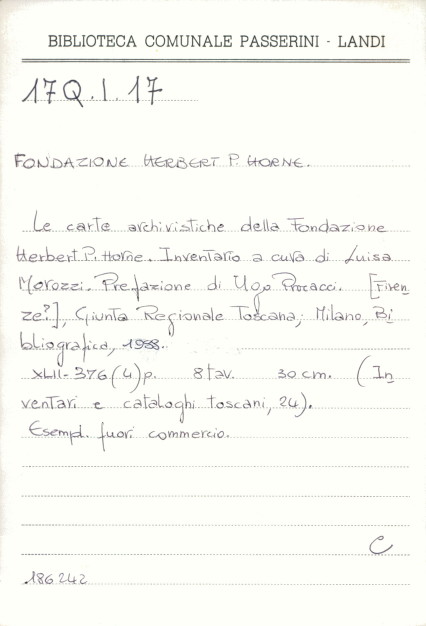 BIBLIOTECA COMUNALE PASSERINI - LANDI
17Q.I.17
FONDAZIONE HERBERT P. HORNE.
Le carte archivistiche della Fondazione
Herbert P. Horne. Inventario a cura di Luisa
Morozzi. Prefazione di Ugo Procacci. [Firen
ze?], Giunta Regionale Toscana; Milano, Bi
bliografica, 1988.
XLII-376(4)p. 8 tav. 30 cm. (In
ventari e cataloghi toscani, 24).
Esempl. fuori commercio.
C
186242